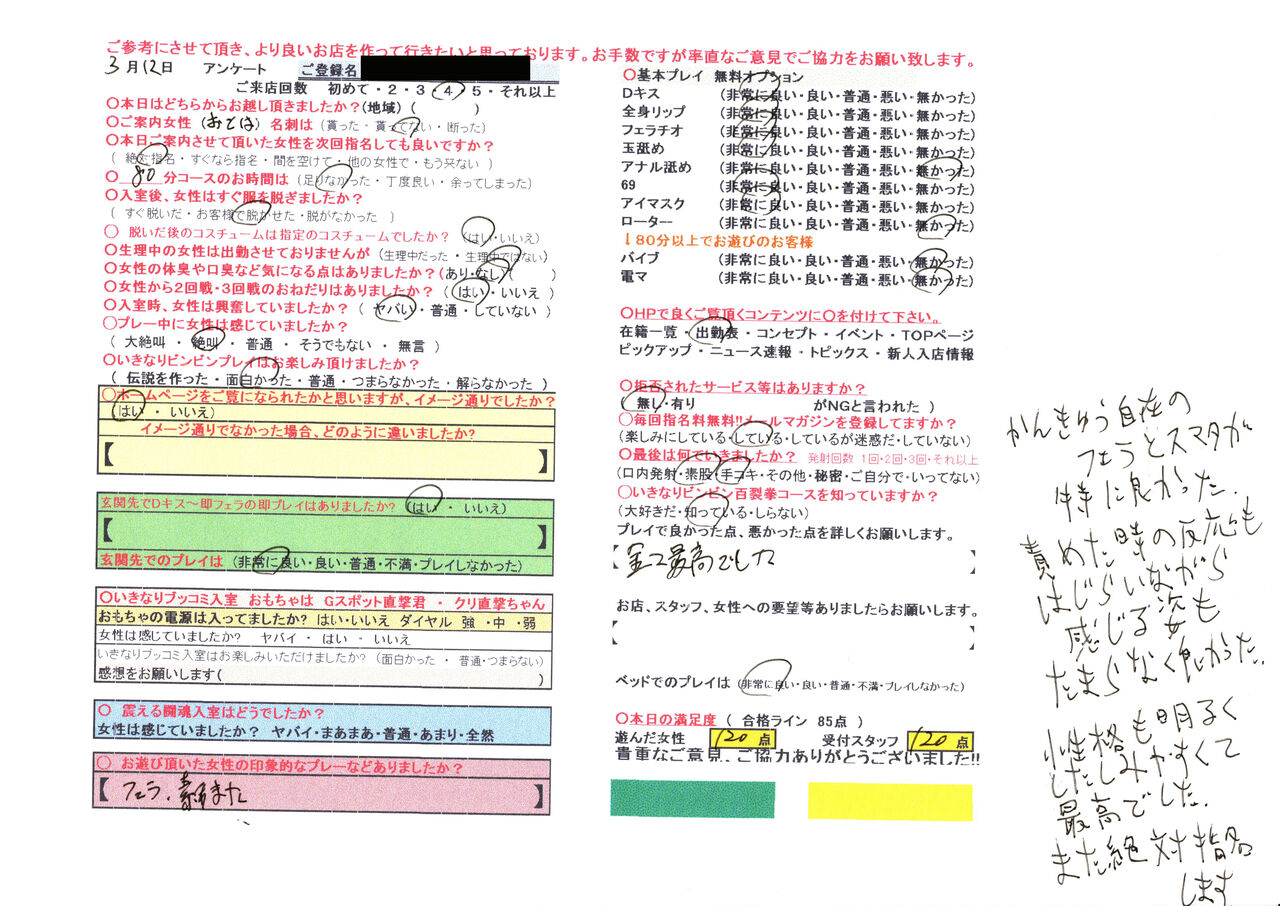 ご参考にさせて頂き、より良いお店を作って行きたいと思っております。お手数ですが率直なご意見でご協力をお願い致します。
3月12日 アンケート ご登録名
ご来店回数 初めて・2・3・4・5・それ以上
○本日はどちらからお越し頂きましたか?(地域) ( )
○ご案内女性 (おとは) 名刺は (貰った・貰ってない・断った)
○本日ご案内させて頂いた女性を次回指名しても良いですか?
( 絶対指名・すぐなら指名・間を空けて・他の女性で・もう来ない )
○ 80 分コースのお時間は (足りなかった・丁度良い・余ってしまった)
○入室後、女性はすぐ服を脱ぎましたか?
( すぐ脱いだ・お客様で脱がせた・脱がなかった )
○ 脱いだ後のコスチュームは指定のコスチュームでしたか? (はい・いいえ)
○生理中の女性は出勤させておりませんが (生理中だった・生理中ではない)
○女性の体臭や口臭など気になる点はありましたか?(あり・なし)( )
○女性から2回戦・3回戦のおねだりはありましたか? ( はい・いいえ )
○入室時、女性は興奮していましたか? ( ヤバい・普通・していない )
○プレー中に女性は感じていましたか?
( 大絶叫・絶叫・普通・そうでもない・無言 )
○いきなりビンビンプレイはお楽しみ頂けましたか?
( 伝説を作った・面白かった・普通・つまらなかった・解らなかった )
○ホームページをご覧になられたかと思いますが、イメージ通りでしたか?
(はい・いいえ)
イメージ通りでなかった場合、どのように違いましたか?
【 】
玄関先でDキス～即フェラの即プレイはありましたか? (はい・いいえ)
【 】
玄関先でのプレイは (非常に良い・良い・普通・不満・プレイしなかった)
○いきなりブッコミ入室 おもちゃは Gスポット直撃君・クリ直撃ちゃん
おもちゃの電源は入ってましたか? はい・いいえ ダイヤル 強・中・弱
女性は感じていましたか? ヤバイ・はい・いいえ
いきなりブッコミ入室はお楽しみいただけましたか? (面白かった・普通・つまらない)
感想をお願いします( )
○ 震える闘魂入室はどうでしたか?
女性は感じていましたか? ヤバイ・まあまあ・普通・あまり・全然
○ お遊び頂いた女性の印象的なプレーなどありましたか?
【 フェラ、素また 】
○基本プレイ 無料オプション
Dキス (非常に良い・良い・普通・悪い・無かった)
全身リップ (非常に良い・良い・普通・悪い・無かった)
フェラチオ (非常に良い・良い・普通・悪い・無かった)
玉舐め (非常に良い・良い・普通・悪い・無かった)
アナル舐め (非常に良い・良い・普通・悪い・無かった)
69 (非常に良い・良い・普通・悪い・無かった)
アイマスク (非常に良い・良い・普通・悪い・無かった)
ローター (非常に良い・良い・普通・悪い・無かった)
↓80分以上でお遊びのお客様
バイブ (非常に良い・良い・普通・悪い・無かった)
電マ (非常に良い・良い・普通・悪い・無かった)
○HPで良くご覧頂くコンテンツに○を付けて下さい。
在籍一覧・出勤表・コンセプト・イベント・TOPページ
ピックアップ・ニュース速報・トピックス・新人入店情報
○拒否されたサービス等はありますか?
( 無し・有り がNGと言われた )
○毎回指名料無料!!メールマガジンを登録してますか?
(楽しみにしている・している・しているが迷惑だ・していない)
○最後は何でいきましたか? 発射回数 1回・2回・3回・それ以上
(口内発射・素股・手コキ・その他・秘密・ご自分で・いってない)
○いきなりビンビン百裂拳コースを知っていますか?
(大好きだ・知っている・しらない)
プレイで良かった点、悪かった点を詳しくお願いします。
【 全て最高でした 】
お店、スタッフ、女性への要望等ありましたらお願いします。
【 】
ベッドでのプレイは (非常に良い・良い・普通・不満・プレイしなかった)
○本日の満足度 ( 合格ライン 85点 )
遊んだ女性 120 点 受付スタッフ 120 点
貴重なご意見、ご協力ありがとうございました!!
かんきゅう自在の
フェラとスマタが
特に良かった。
責めた時の反応も
はじらいながら
感じる姿も
たまらなく良かった。
性格も明るく
したしみやすくて
最高でした。
また絶対指名
します